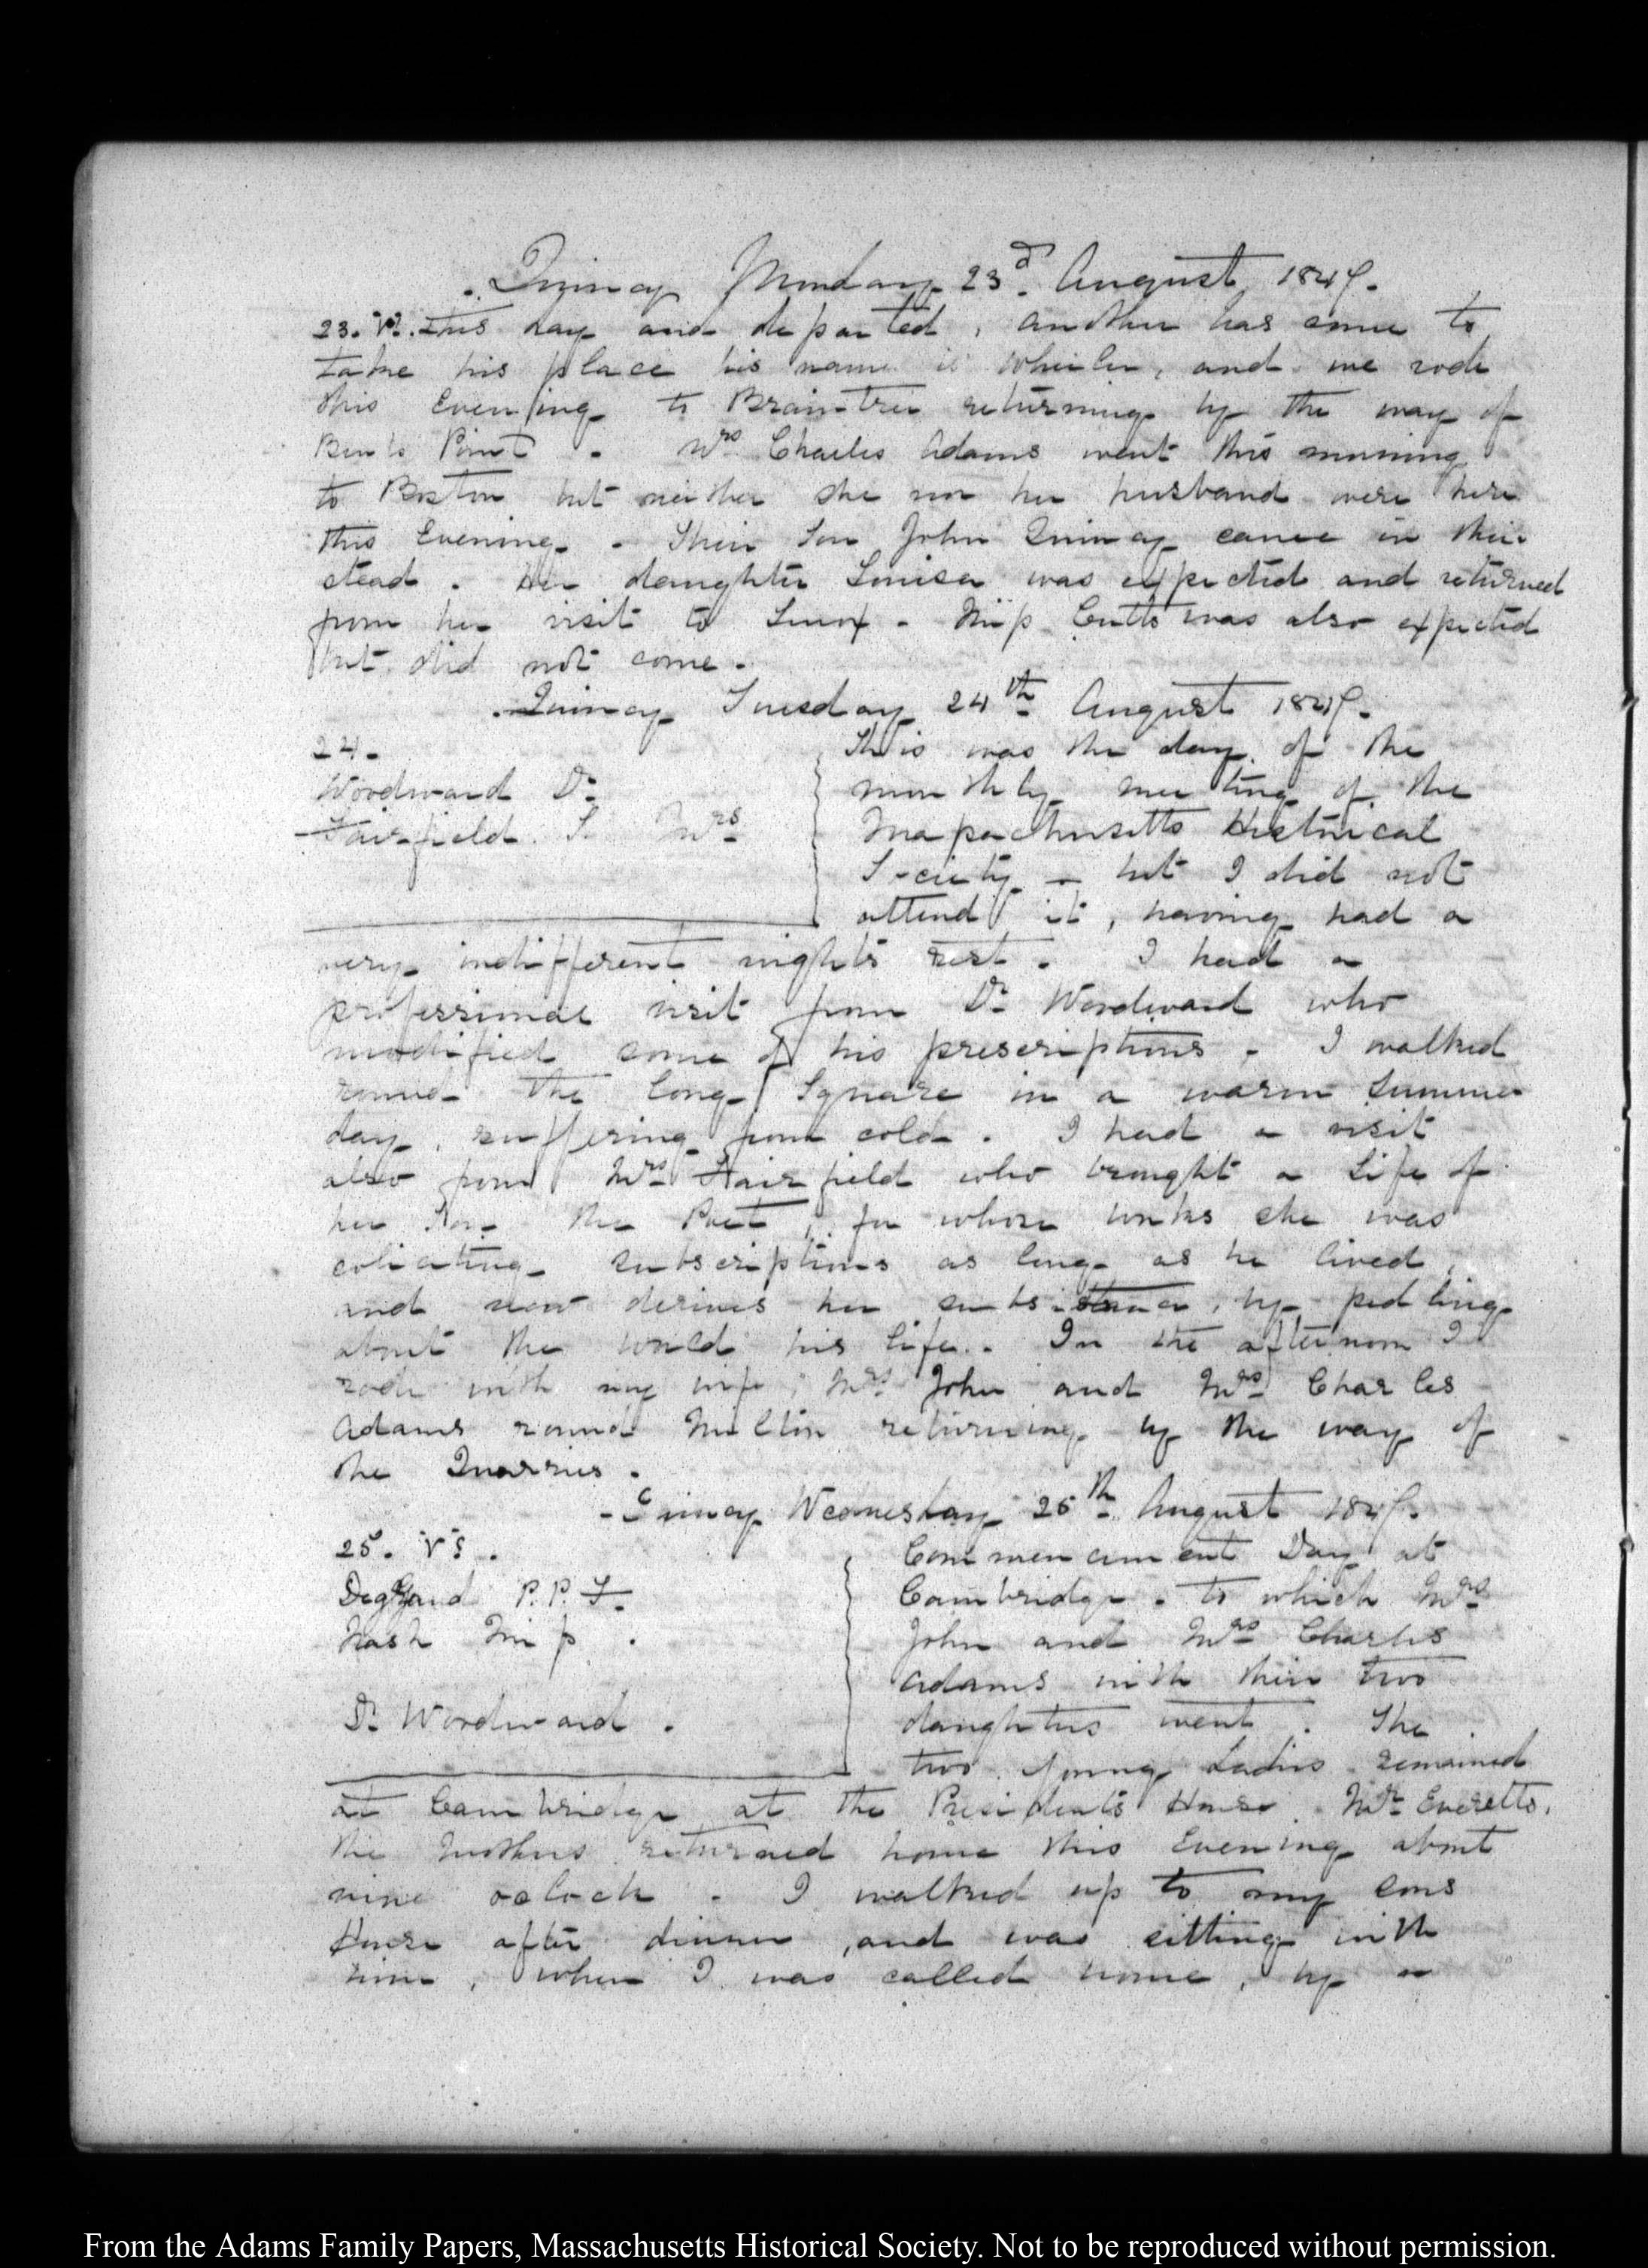 Quincy Monday 23.d August 1847.
23. V. This day and departed, another has come to
take his place his name is Wheeler, and we rode
this Evening to Braintree returning by the way of
Bents Point. Mrs Charles Adams went this morning
to Boston but neither she nor her husband were here
this Evening. Their Son John Quincy came in their
stead. Her daughter Louisa was expected and returned
from her visit to Lenox. Miss Cutts was also expected
but did not come.
Quincy Tuesday 24th August 1847.
24.
Woodward Dr
Fairfield S. Mrs
This was the day of the
monthly meeting of the
Massachusetts Historical
Society – but I did not
attend it, having had a
very indifferent night's rest. I had a
professional visit from Dr Woodward who
modified some of his prescriptions. I walked
round the long Square in a warm summer
day, suffering from cold. I had a visit
also from Mrs Fairfield who brought a Life of
her Son the Poet, for whose works she was
soliciting subscriptions as long as he lived,
and now derives her subsistance, by pedling
about the world his life. In the afternoon I
rode with my wife, Mrs John and Mrs Charles
Adams round Milton returning by the way of
the Quarries.
Quincy Wednesday 25th August 1847.
25. VI.
Degrand P. P. F.
Nash Miss.
Dr Woodward.
Commencement Day at
Cambridge. to which Mrs
John and Mrs Charles
Adams with their two
daughters went. The
two young Ladies remained
at Cambridge at the President's House Mr Everetts.
the Mothers returned home this Evening about
nine oclock. I walked up to my sons
House after dinner, and was sitting with
him, when I was called home, by a
From the Adams Family Papers, Massachusetts Historical Society. Not to be reproduced without permission.